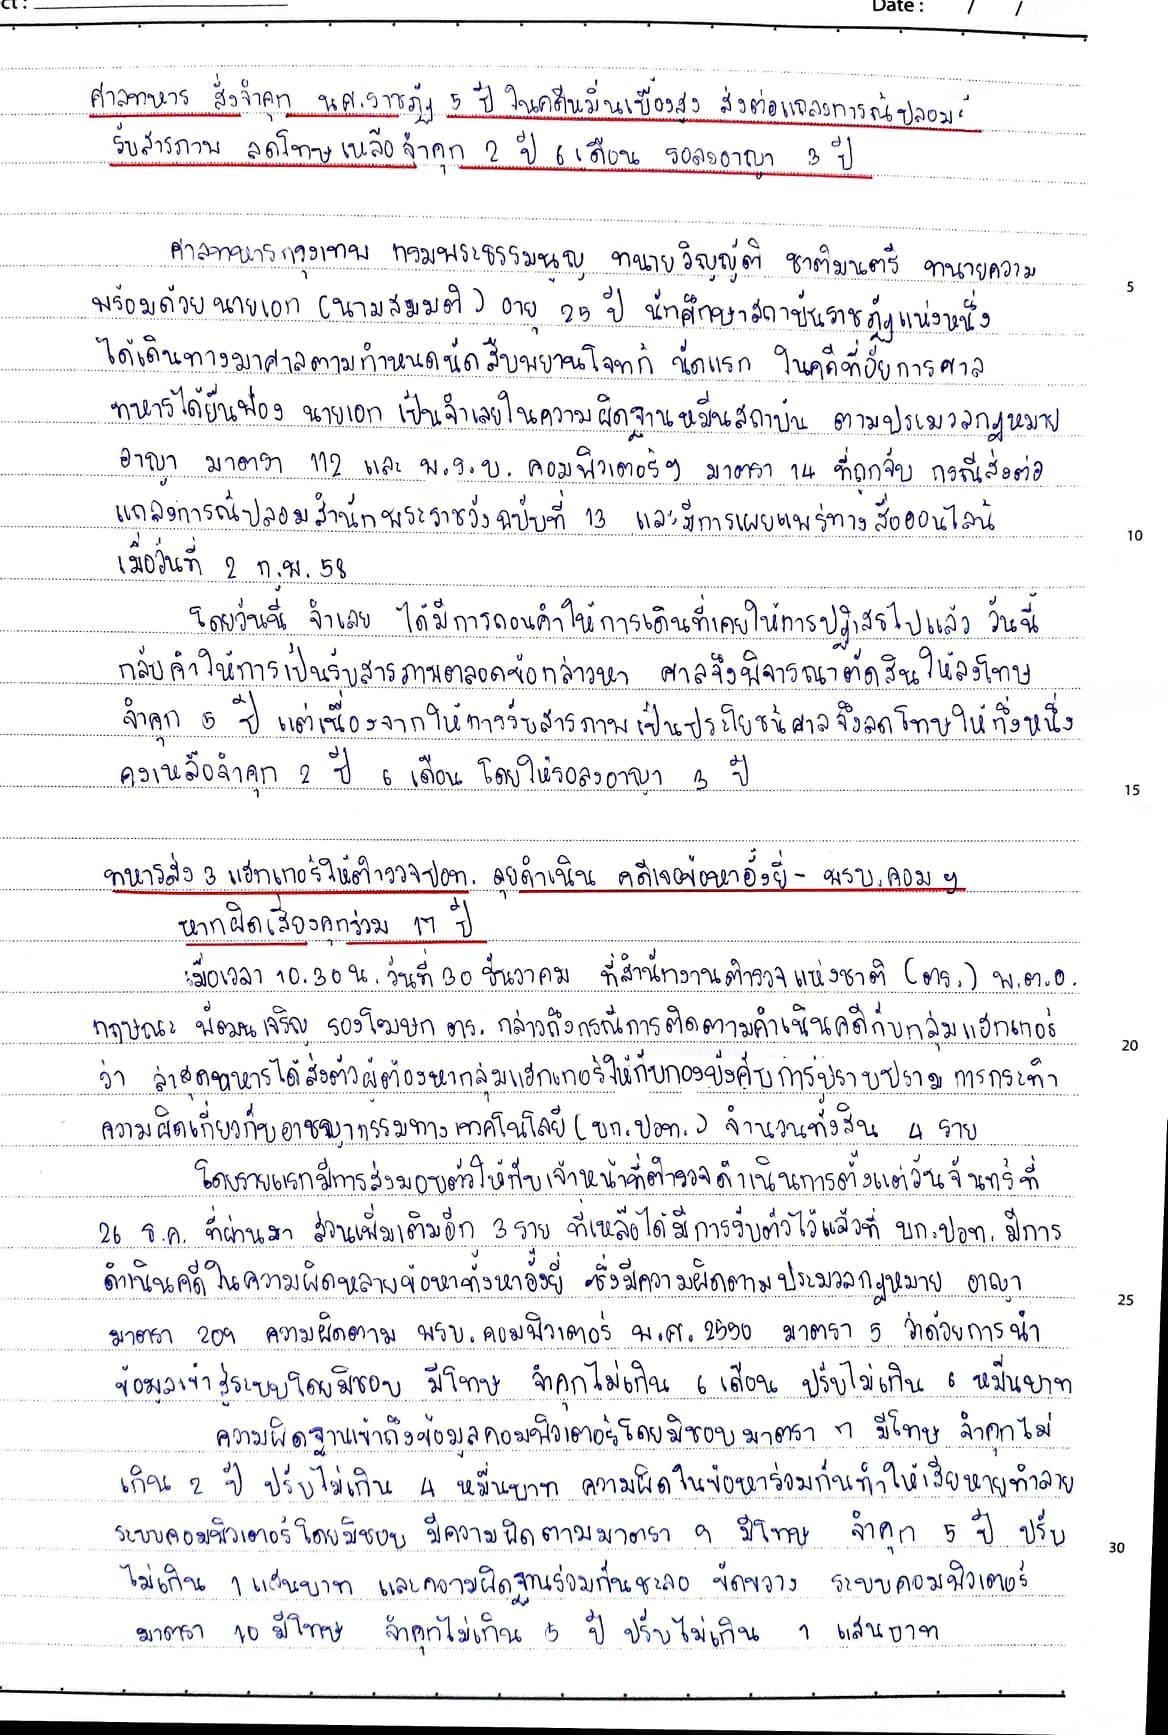 Date : / /
ศาลทหาร สั่งจำคุก นศ.ราชภัฏ 5 ปี ในคดีหมิ่นเบื้องสูง ส่งต่อแถลงการณ์ปลอม
รับสารภาพ ลดโทษเหลือจำคุก 2 ปี 6 เดือน รอลงอาญา 3 ปี
ศาลทหารกรุงเทพ กรมพระธรรมนูญ ทนายวิญญัติ ชาติมนตรี ทนายความ
5
พร้อมด้วยนายเอก (นามสมมติ) อายุ 25 ปี นักศึกษาสถาบันราชภัฏแห่งหนึ่ง
ได้เดินทางมาศาลตามกำหนดนัดสืบพยานโจทก์ นัดแรก ในคดีที่อัยการศาล
ทหารได้ยื่นฟ้อง นายเอก เป็นจำเลยในความผิดฐานหมิ่นสถาบัน ตามประมวลกฎหมาย
อาญา มาตรา 112 และ พ.ร.บ. คอมพิวเตอร์ฯ มาตรา 14 ที่ถูกจับ กรณีส่งต่อ
แถลงการณ์ปลอมสำนักพระราชวังฉบับที่ 13 และมีการเผยแพร่ทางสื่อออนไลน์
10
เมื่อวันที่ 2 ก.พ. 58
โดยวันนี้ จำเลย ได้มีการถอนคำให้การเดิมที่เคยให้การปฏิเสธไปแล้ว วันนี้
กลับคำให้การเป็นรับสารภาพตลอดข้อกล่าวหา ศาลจึงพิจารณาตัดสินให้ลงโทษ
จำคุก 5 ปี แต่เนื่องจากให้การรับสารภาพเป็นประโยชน์ศาลจึงลดโทษให้กึ่งหนึ่ง
คงเหลือจำคุก 2 ปี 6 เดือน โดยให้รอลงอาญา 3 ปี
15
ทหารส่ง 3 แฮกเกอร์ให้ตำรวจปอท. ลุยดำเนิน คดีเจอข้อหาอั้งยี่ - พรบ.คอมฯ
หากผิดเสี่ยงคุกร่วม 17 ปี
เมื่อเวลา 10.30 น. วันที่ 30 ธันวาคม ที่สำนักงานตำรวจแห่งชาติ (ตร.) พ.ต.อ.
กฤษณะ พัฒนเจริญ รองโฆษก ตร. กล่าวถึงกรณีการติดตามดำเนินคดีกับกลุ่มแฮกเกอร์
20
ว่า ล่าสุดทหารได้ส่งตัวผู้ต้องหากลุ่มแฮกเกอร์ให้กับกองบังคับการปราบปราม การกระทำ
ความผิดเกี่ยวกับอาชญากรรมทางเทคโนโลยี (บก.ปอท.) จำนวนทั้งสิ้น 4 ราย
โดยรายแรกมีการส่งมอบตัวให้กับเจ้าหน้าที่ตำรวจดำเนินการตั้งแต่วันจันทร์ที่
26 ธ.ค. ที่ผ่านมา ส่วนเพิ่มเติมอีก 3 ราย ที่เหลือได้มีการรับตัวไว้แล้วที่ บก.ปอท. มีการ
ดำเนินคดีในความผิดหลายข้อหาทั้งหาอั้งยี่ ซึ่งมีความผิดตามประมวลกฎหมาย อาญา
25
มาตรา 209 ความผิดตาม พรบ.คอมพิวเตอร์ พ.ศ.2550 มาตรา 5 ว่าด้วยการนำ
ข้อมูลเข้าสู่ระบบโดยมิชอบ มีโทษ จำคุกไม่เกิน 6 เดือน ปรับไม่เกิน 6 หมื่นบาท
ความผิดฐานเข้าถึงข้อมูลคอมพิวเตอร์โดยมิชอบมาตรา 7 มีโทษ จำคุกไม่
เกิน 2 ปี ปรับไม่เกิน 4 หมื่นบาท ความผิดในข้อหาร่วมกันทำให้เสียหายทำลาย
ระบบคอมพิวเตอร์โดยมิชอบ มีความผิดตามมาตรา 9 มีโทษ จำคุก 5 ปี ปรับ
30
ไม่เกิน 1 แสนบาท และความผิดฐานร่วมกันชะลอ ขัดขวาง ระบบคอมพิวเตอร์
มาตรา 10 มีโทษ จำคุกไม่เกิน 5 ปี ปรับไม่เกิน 1 แสนบาท